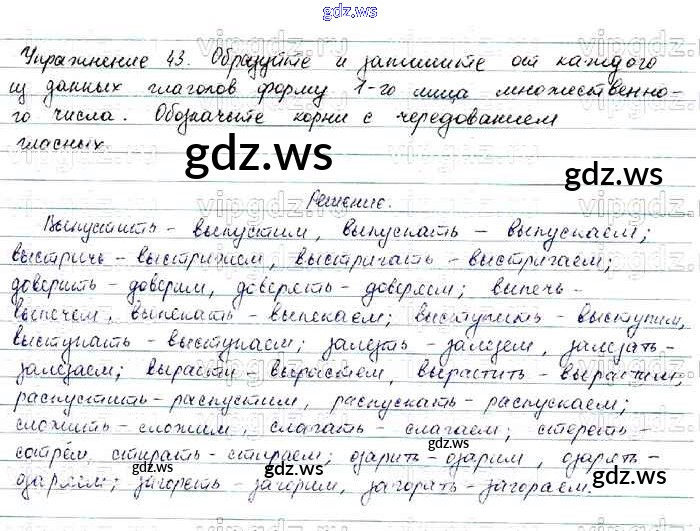 gdz.ws
Упражнение 43. Образуйте и запишите от каждого
из данных глаголов форму 1-го лица множественно-
го числа. Обозначьте корни с чередованием
гласных.
gdz.ws
gdz.ws
Решение.
Выпустить - выпустим, выпускать - выпускаем;
выстричь - выстрижем, выстригать - выстригаем;
доверить - доверим, доверять - доверяем; выпечь -
выпечем, выпекать - выпекаем; выступить - выступим,
выступать - выступаем; залезть - залезем, залезать -
залезаем; вырасти - вырастем, вырастить - вырастим;
распустить - распустим, распускать - распускаем;
сложить - сложим, слагать - слагаем; стереть -
сотрём, стирать - стираем; озарить - озарим, озарять -
озаряем; загореть - загорим, загорать - загораем.
gdz.ws
gdz.ws
gdz.ws